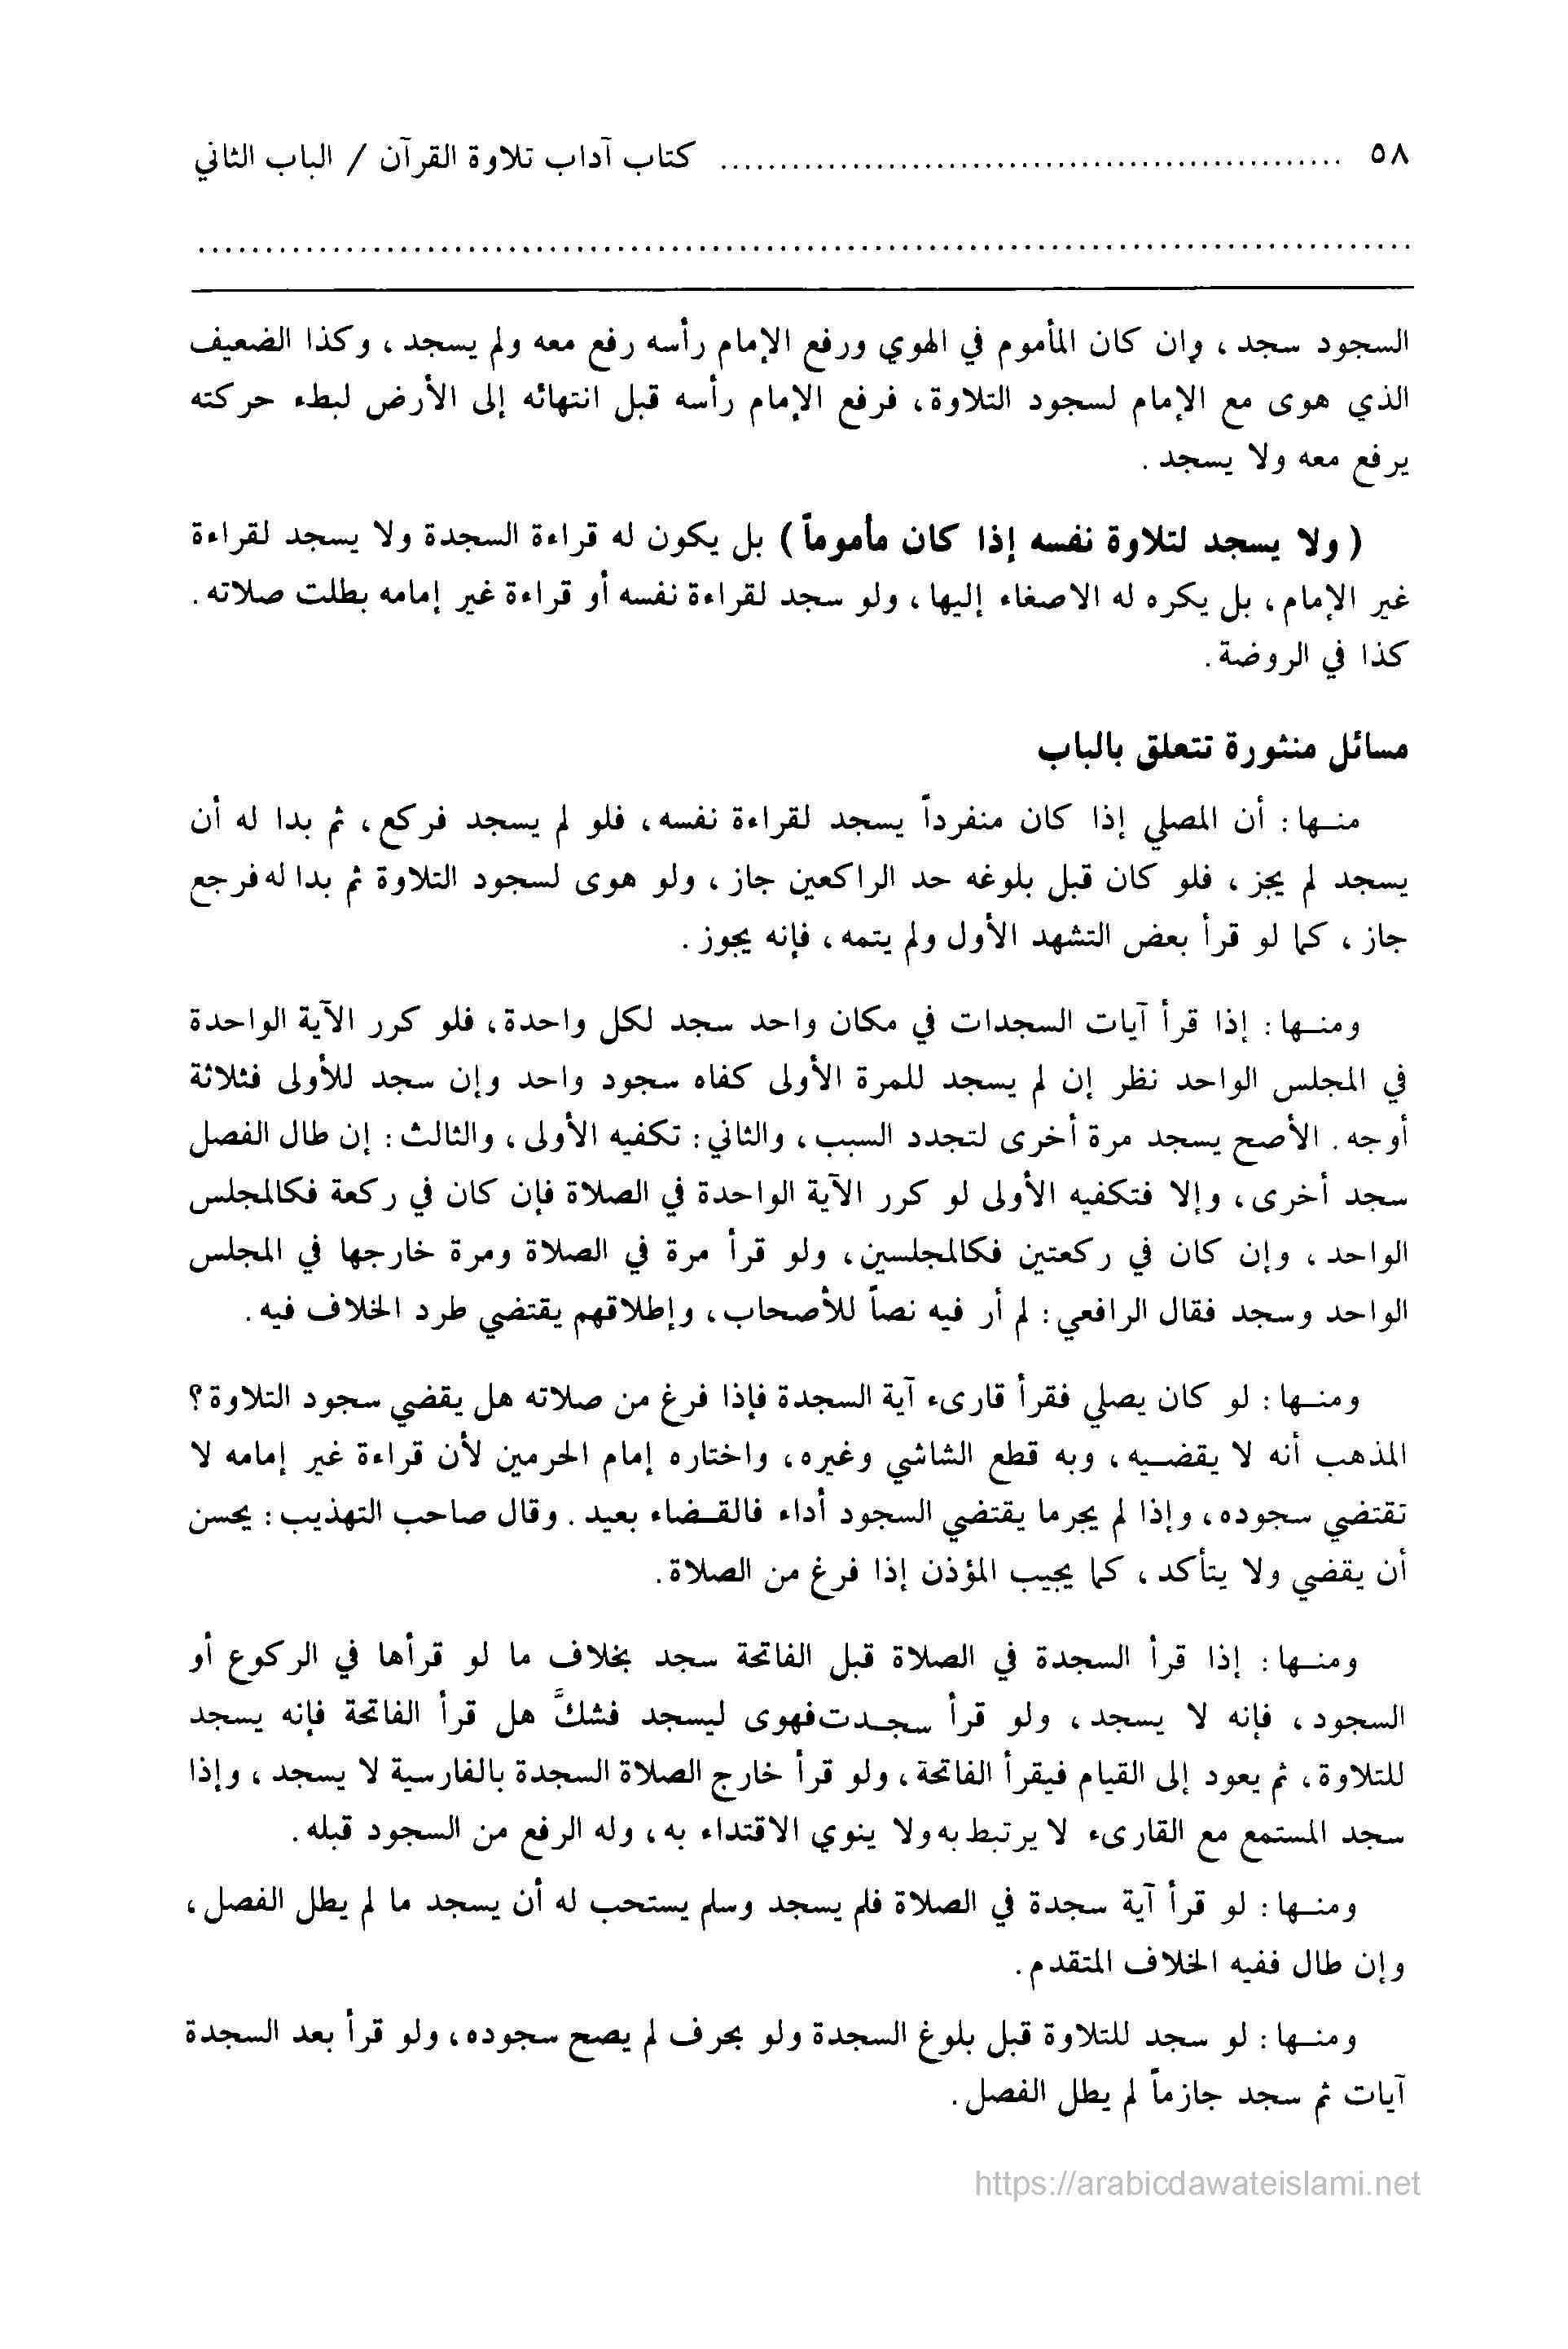 ٥٨ .................................................... كتاب آداب تلاوة القرآن / الباب الثاني
..........................................................................................
السجود سجد ، وإن كان المأموم في الهوي ورفع الإمام رأسه رفع معه ولم يسجد ، وكذا الضعيف
الذي هوى مع الإمام لسجود التلاوة ، فرفع الإمام رأسه قبل انتهائه إلى الأرض لبطء حركته
يرفع معه ولا يسجد .
( ولا يسجد لتلاوة نفسه إذا كان مأموماً ) بل يكون له قراءة السجدة ولا يسجد لقراءة
غير الإمام ، بل يكره له الاصغاء إليها ، ولو سجد لقراءة نفسه أو قراءة غير إمامه بطلت صلاته .
كذا في الروضة .
مسائل منثورة تتعلق بالباب
منـها : أن المصلي إذا كان منفرداً يسجد لقراءة نفسه ، فلو لم يسجد فركع ، ثم بدا له أن
يسجد لم يجز ، فلو كان قبل بلوغه حد الراكعين جاز ، ولو هوى لسجود التلاوة ثم بدا له فرجع
جاز ، كما لو قرأ بعض التشهد الأول ولم يتمه ، فإنه يجوز .
ومنـها : إذا قرأ آيات السجدات في مكان واحد سجد لكل واحدة ، فلو كرر الآية الواحدة
في المجلس الواحد نظر إن لم يسجد للمرة الأولى كفاه سجود واحد وإن سجد للأولى فثلاثة
أوجه . الأصح يسجد مرة أخرى لتجدد السبب ، والثاني : تكفيه الأولى ، والثالث : إن طال الفصل
سجد أخرى ، وإلا فتكفيه الأولى لو كرر الآية الواحدة في الصلاة فإن كان في ركعة فكالمجلس
الواحد ، وإن كان في ركعتين فكالمجلسين ، ولو قرأ مرة في الصلاة ومرة خارجها في المجلس
الواحد وسجد فقال الرافعي : لم أر فيه نصاً للأصحاب ، وإطلاقهم يقتضي طرد الخلاف فيه .
ومنـها : لو كان يصلي فقرأ قارىء آية السجدة فإذا فرغ من صلاته هل يقضي سجود التلاوة ؟
المذهب أنه لا يقضـيه ، وبه قطع الشاشي وغيره ، واختاره إمام الحرمين لأن قراءة غير إمامه لا
تقتضي سجوده ، وإذا لم يجرما يقتضي السجود أداء فالقـضاء بعيد . وقال صاحب التهذيب : يحسن
أن يقضي ولا يتأكد ، كما يجيب المؤذن إذا فرغ من الصلاة .
ومنـها : إذا قرأ السجدة في الصلاة قبل الفاتحة سجد بخلاف ما لو قرأها في الركوع أو
السجود ، فإنه لا يسجد ، ولو قرأ سجـدت فهوى ليسجد فشكَّ هل قرأ الفاتحة فإنه يسجد
للتلاوة ، ثم يعود إلى القيام فيقرأ الفاتحة ، ولو قرأ خارج الصلاة السجدة بالفارسية لا يسجد ، وإذا
سجد المستمع مع القارىء لا يرتبط به ولا ينوي الاقتداء به ، وله الرفع من السجود قبله .
ومنـها : لو قرأ آية سجدة في الصلاة فلم يسجد وسلم يستحب له أن يسجد ما لم يطل الفصل ،
وإن طال ففيه الخلاف المتقدم .
ومنـها : لو سجد للتلاوة قبل بلوغ السجدة ولو بحرف لم يصح سجوده ، ولو قرأ بعد السجدة
آيات ثم سجد جازماً لم يطل الفصل .
https://arabicdawateislami.net